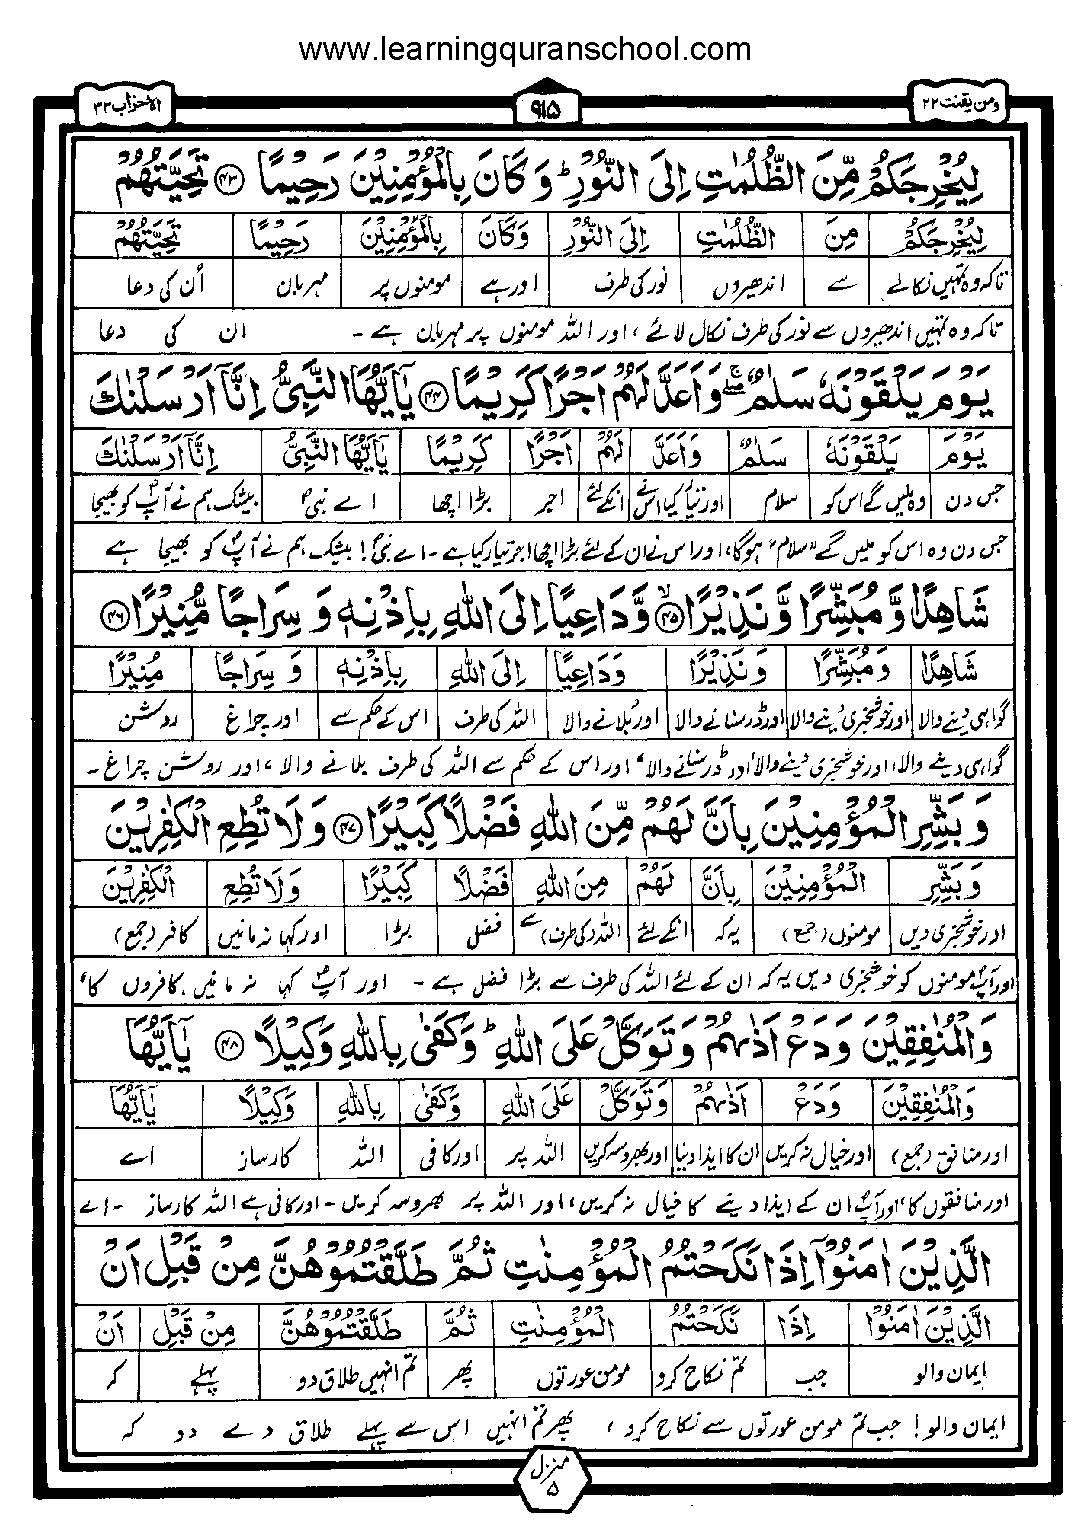 www.learningquranschool.com
ومن یقنت ۲۲
۹۱۵
الاحزاب ۳۳
لِيُخْرِجَكُمْ مِّنَ الظُّلُمٰتِ اِلَى النُّوْرِ ؕ وَ كَانَ بِالْمُؤْمِنِيْنَ رَحِيْمًا ﴿۴۳﴾ تَحِيَّتُهُمْ
لِيُخْرِجَكُمْ مِنَ الظُّلُمٰتِ اِلَى النُّوْرِ وَكَانَ بِالْمُؤْمِنِيْنَ رَحِيْمًا تَحِيَّتُهُمْ
تاکہ وہ تمہیں نکالے سے اندھیروں نور کی طرف اور ہے مومنوں پر مہربان اُن کی دعا
تاکہ وہ تمہیں اندھیروں سے نور کی طرف نکال لائے، اور اللہ مومنوں پر مہربان ہے - ان کی دعا
يَوْمَ يَلْقَوْنَهٗ سَلٰمٌ ۖۚ وَ اَعَدَّ لَهُمْ اَجْرًا كَرِيْمًا ﴿۴۴﴾ يٰۤاَيُّهَا النَّبِيُّ اِنَّاۤ اَرْسَلْنٰكَ
يَوْمَ يَلْقَوْنَهٗ سَلٰمٌ وَاَعَدَّ لَهُمْ اَجْرًا كَرِيْمًا يٰۤاَيُّهَا النَّبِيُّ اِنَّاۤ اَرْسَلْنٰكَ
جس دن وہ ملیں گے اس کو سلام اور تیار کیا اس نے انکے لئے اجر بڑا اچھا اے نبیؐ بیشک ہم نے آپؐ کو بھیجا
جس دن وہ اس کو ملیں گے "سلام" ہوگا، اور اس نے ان کے لئے بڑا اچھا اجر تیار کیا ہے - اے نبیؐ! بیشک ہم نے آپؐ کو بھیجا ہے
شَاهِدًا وَّ مُبَشِّرًا وَّ نَذِيْرًا ﴿۴۵﴾ وَّ دَاعِيًا اِلَى اللّٰهِ بِاِذْنِهٖ وَ سِرَاجًا مُّنِيْرًا ﴿۴۶﴾
شَاهِدًا وَمُبَشِّرًا وَ نَذِيْرًا وَدَاعِيًا اِلَى اللّٰهِ بِاِذْنِهٖ وَ سِرَاجًا مُنِيْرًا
گواہی دینے والا اور خوشخبری دینے والا اور ڈر سنانے والا اور بُلانے والا اللہ کی طرف اس کے حکم سے اور چراغ روشن
گواہی دینے والا، اور خوشخبری دینے والا، اور ڈر سنانے والا، اور اس کے حکم سے اللہ کی طرف بلانے والا، اور روشن چراغ -
وَ بَشِّرِ الْمُؤْمِنِيْنَ بِاَنَّ لَهُمْ مِّنَ اللّٰهِ فَضْلًا كَبِيْرًا ﴿۴۷﴾ وَ لَا تُطِعِ الْكٰفِرِيْنَ
وَ بَشِّرِ الْمُؤْمِنِيْنَ بِاَنَّ لَهُمْ مِنَ اللّٰهِ فَضْلًا كَبِيْرًا وَلَا تُطِعِ الْكٰفِرِيْنَ
اور خوشخبری دیں مومنوں (جمع) یہ کہ انکے لئے اللہ (کی طرف) سے فضل بڑا اور کہا نہ مانیں کافر (جمع)
اور آپؐ مومنوں کو خوشخبری دیں یہ کہ ان کے لئے اللہ کی طرف سے بڑا فضل ہے - اور آپؐ کہا نہ مانیں کافروں کا،
وَ الْمُنٰفِقِيْنَ وَ دَعْ اَذٰىهُمْ وَ تَوَكَّلْ عَلَى اللّٰهِ ؕ وَ كَفٰى بِاللّٰهِ وَكِيْلًا ﴿۴۸﴾ يٰۤاَيُّهَا
وَ الْمُنٰفِقِيْنَ وَدَعْ اَذٰىهُمْ وَتَوَكَّلْ عَلَى اللّٰهِ وَكَفٰى بِاللّٰهِ وَكِيْلًا يٰۤاَيُّهَا
اور منافق (جمع) اور خیال نہ کریں ان کا ایذا دینا اور بھروسہ کریں اللہ پر اور کافی اللہ کارساز اے
اور منافقوں کا، اور آپؐ ان کے ایذا دینے کا خیال نہ کریں، اور اللہ پر بھروسہ کریں - اور کافی ہے اللہ کارساز - اے
الَّذِيْنَ اٰمَنُوْۤا اِذَا نَكَحْتُمُ الْمُؤْمِنٰتِ ثُمَّ طَلَّقْتُمُوْهُنَّ مِنْ قَبْلِ اَنْ
الَّذِيْنَ اٰمَنُوْۤا اِذَا نَكَحْتُمُ الْمُؤْمِنٰتِ ثُمَّ طَلَّقْتُمُوْهُنَّ مِنْ قَبْلِ اَنْ
ایمان والو جب تم نکاح کرو مومن عورتوں پھر تم انہیں طلاق دو پہلے کہ
ایمان والو! جب تم مومن عورتوں سے نکاح کرو، پھر تم انہیں اس سے پہلے طلاق دے دو کہ
منزل ۵